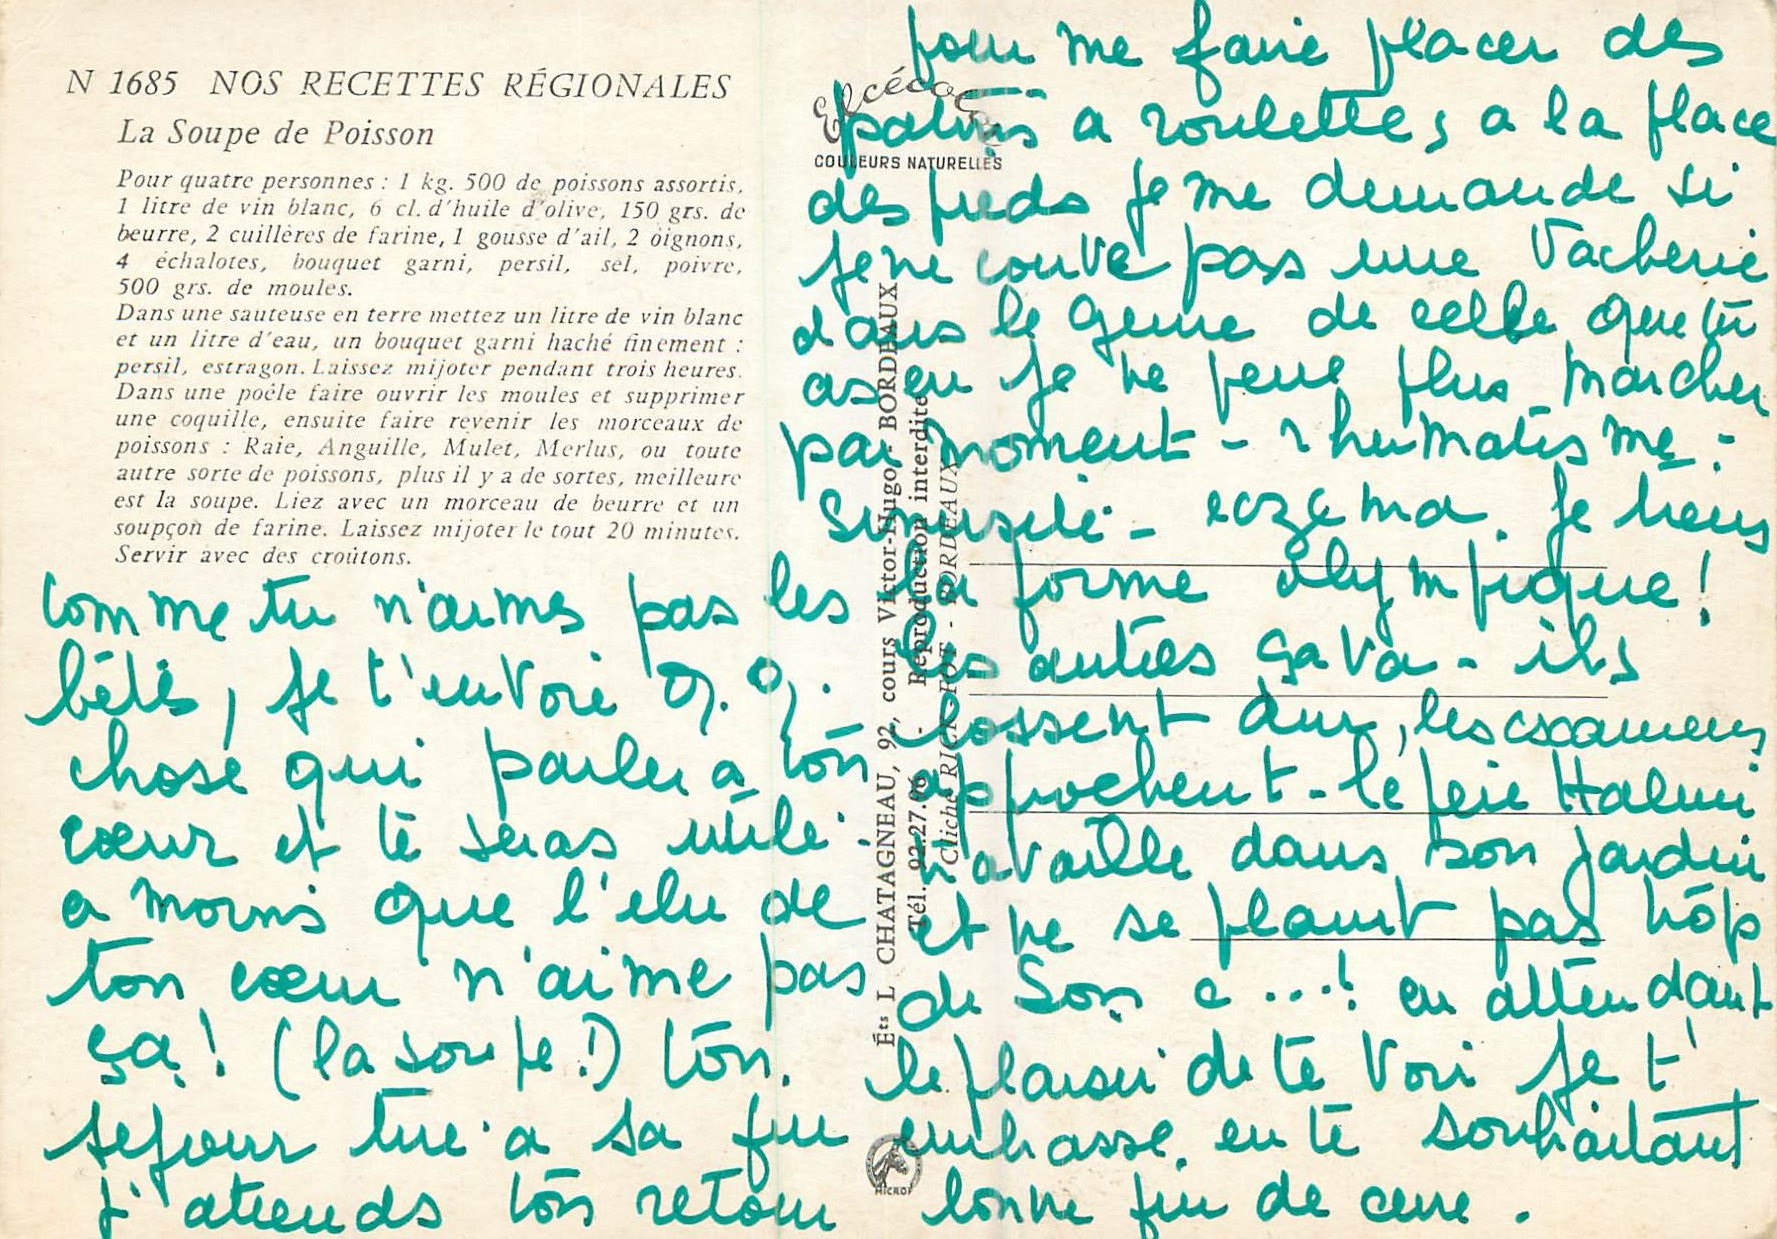 N 1685 NOS RECETTES RÉGIONALES
La Soupe de Poisson
Pour quatre personnes : 1 kg. 500 de poissons assortis,
1 litre de vin blanc, 6 cl. d'huile d'olive, 150 grs. de
beurre, 2 cuillères de farine, 1 gousse d'ail, 2 oignons,
4 échalotes, bouquet garni, persil, sel, poivre,
500 grs. de moules.
Dans une sauteuse en terre mettez un litre de vin blanc
et un litre d'eau, un bouquet garni haché finement :
persil, estragon. Laissez mijoter pendant trois heures.
Dans une poêle faire ouvrir les moules et supprimer
une coquille, ensuite faire revenir les morceaux de
poissons : Raie, Anguille, Mulet, Merlus, ou toute
autre sorte de poissons, plus il y a de sortes, meilleure
est la soupe. Liez avec un morceau de beurre et un
soupçon de farine. Laissez mijoter le tout 20 minutes.
Servir avec des croûtons.
comme tu n'aimes pas les
bêtes, je t'envoie q. q.
chose qui parlera a ton
cœur et te seras utile.
a moins que l'elu de
ton cœur n'aime pas
ça! (la soupe!) ton
sejour tire a sa fin
j'attends ton retour
pour me faire placer des
patins a roulettes a la place
des pieds je me demande si
je ne couve pas une vacherie
dans le genre de celle que tu
as eu je ne peux plus marcher
par moment - rhumatisme -
sinusite - eczema. je tiens
la forme olympique!
les autres ça va - ils
bossent dur, les examens
approchent - le père Halmi
travaille dans son jardin
et ne se plaint pas trop
de son c...! en attendant
le plaisir de te voir je t'
embrasse en te souhaitant
bonne fin de cure.
Elcécolor
COULEURS NATURELLES
Éts L CHATAGNEAU, 92, cours Victor-Hugo - BORDEAUX
Tél. 92.27.96 - Reproduction interdite
Cliché - BORDEAUX